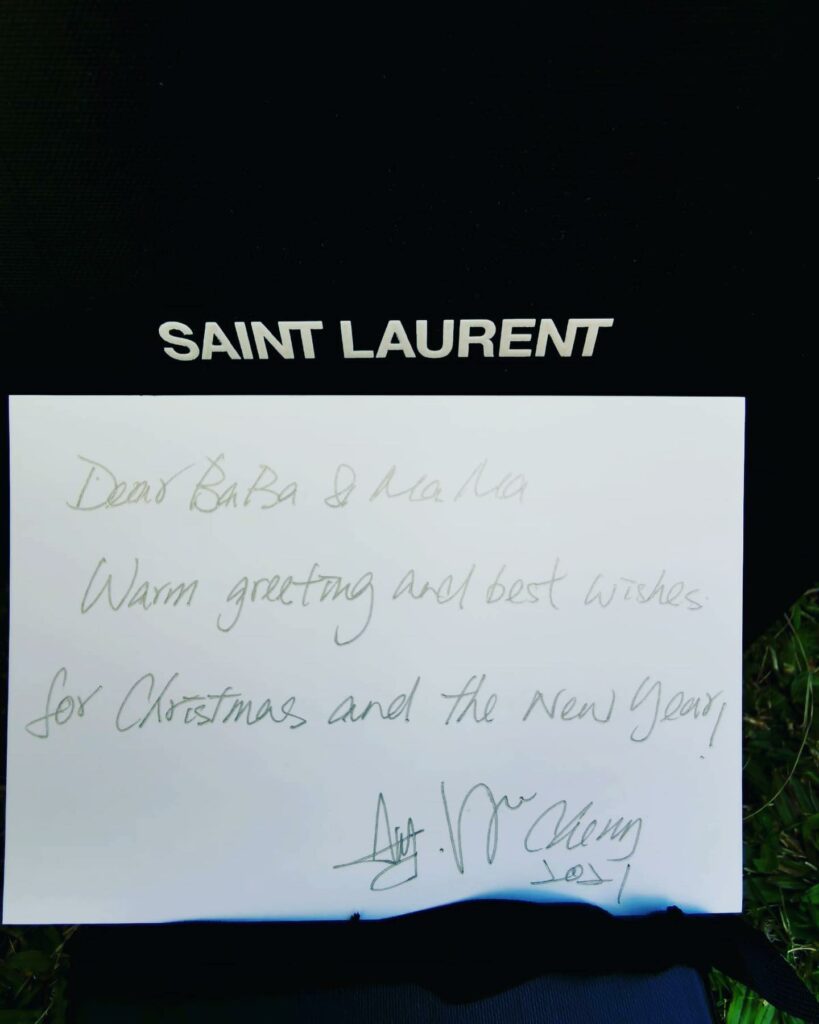 SAINT LAURENT
Dear BaBa & MaMa
Warm greeting and best wishes
for Christmas and the New Year!
Cheng
2021